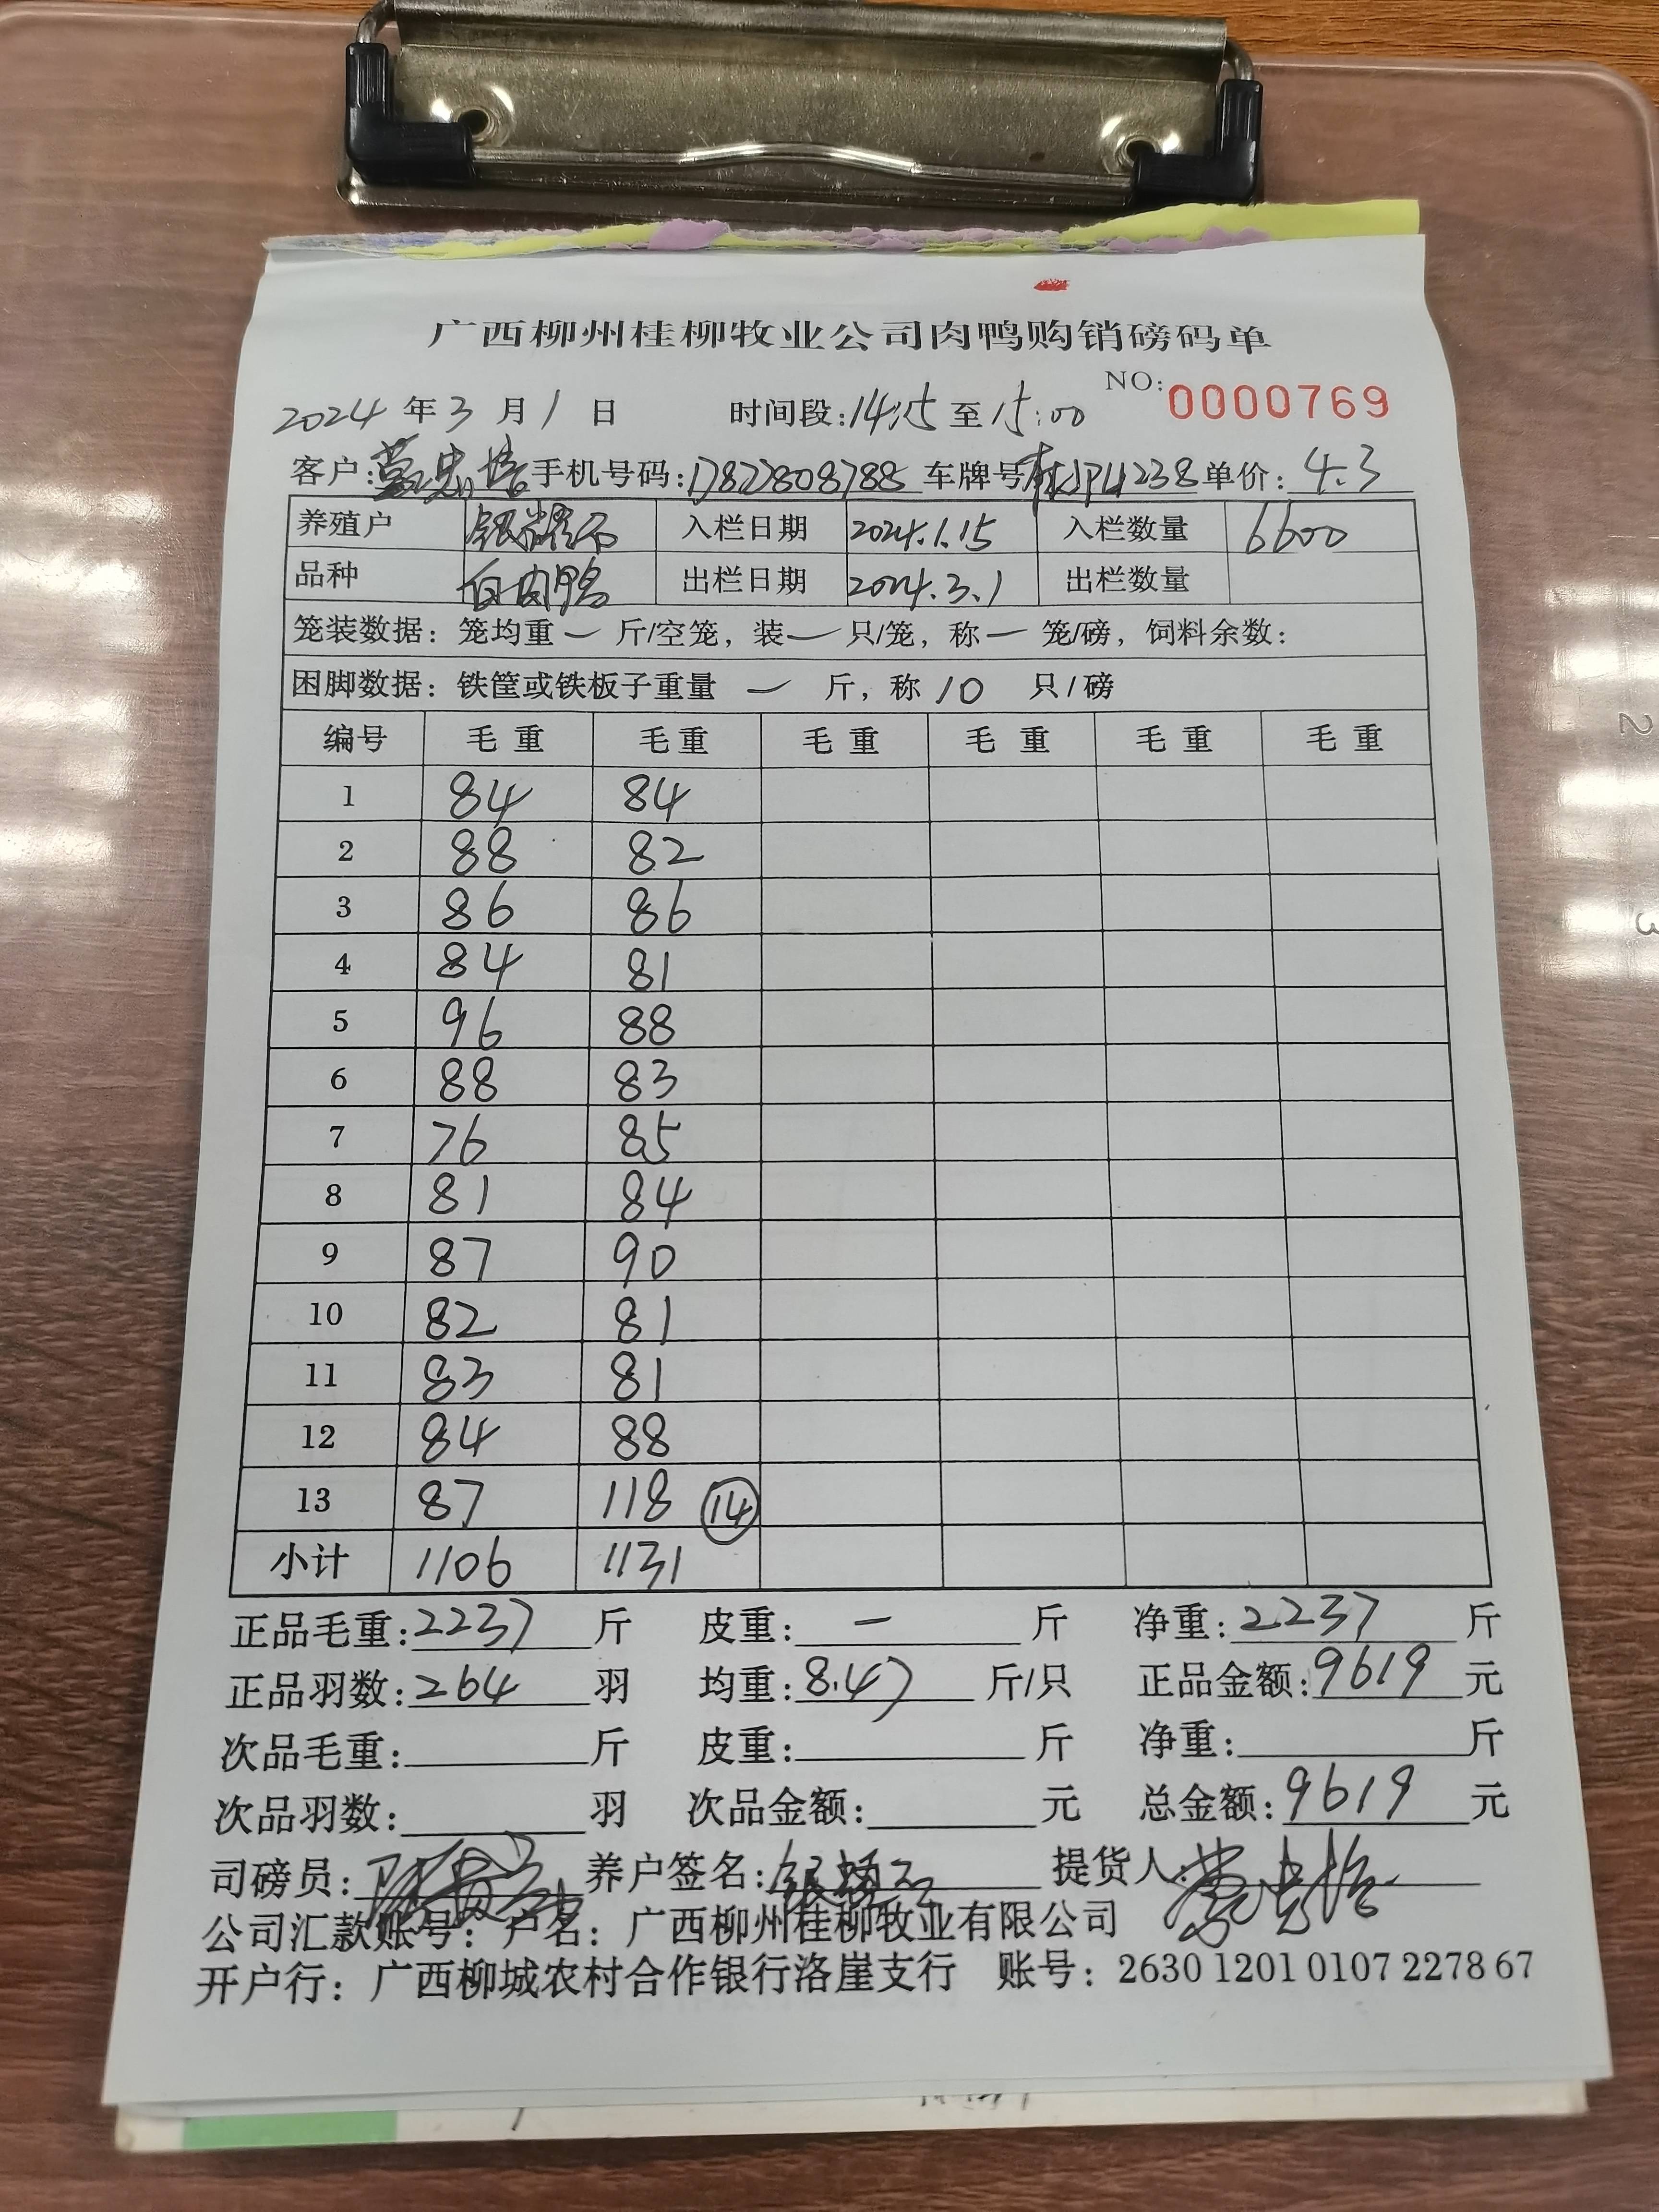 广西柳州桂柳牧业公司肉鸭购销磅码单
NO: 0000769
2024 年 3 月 1 日 时间段: 14:15 至 15:00
客户: 手机号码: 17878808788 车牌号 单价: 4.3
养殖户 入栏日期 2024.1.15 入栏数量 6600
品种 白肉鸭 出栏日期 2024.3.1 出栏数量
笼装数据: 笼均重 一 斤/空笼, 装 一 只/笼, 称 一 笼/磅, 饲料余数:
困脚数据: 铁筐或铁板子重量 一 斤, 称 10 只/磅
编号 毛重 毛重 毛重 毛重 毛重 毛重
1 84 84
2 88 82
3 86 86
4 84 81
5 96 88
6 88 83
7 76 85
8 81 84
9 87 90
10 82 81
11 83 81
12 84 88
13 87 118 14
小计 1106 1131
正品毛重: 2237 斤 皮重: 一 斤 净重: 2237 斤
正品羽数: 264 羽 均重: 8.47 斤/只 正品金额: 9619 元
次品毛重: 斤 皮重: 斤 净重: 斤
次品羽数: 羽 次品金额: 元 总金额: 9619 元
司磅员: 养户签名: 提货人:
公司汇款账号: 户名: 广西柳州桂柳牧业有限公司
开户行: 广西柳城农村合作银行洛崖支行 账号: 2630 1201 0107 2278 67
2
3